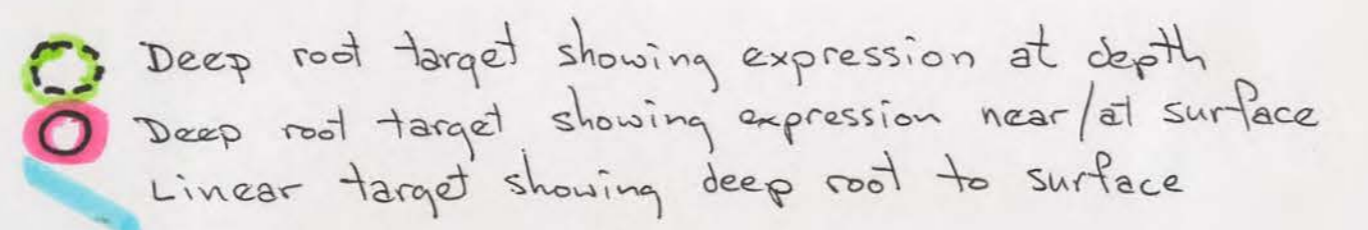 Deep root target showing expression at depth
Deep root target showing expression near/at surface
Linear target showing deep root to surface